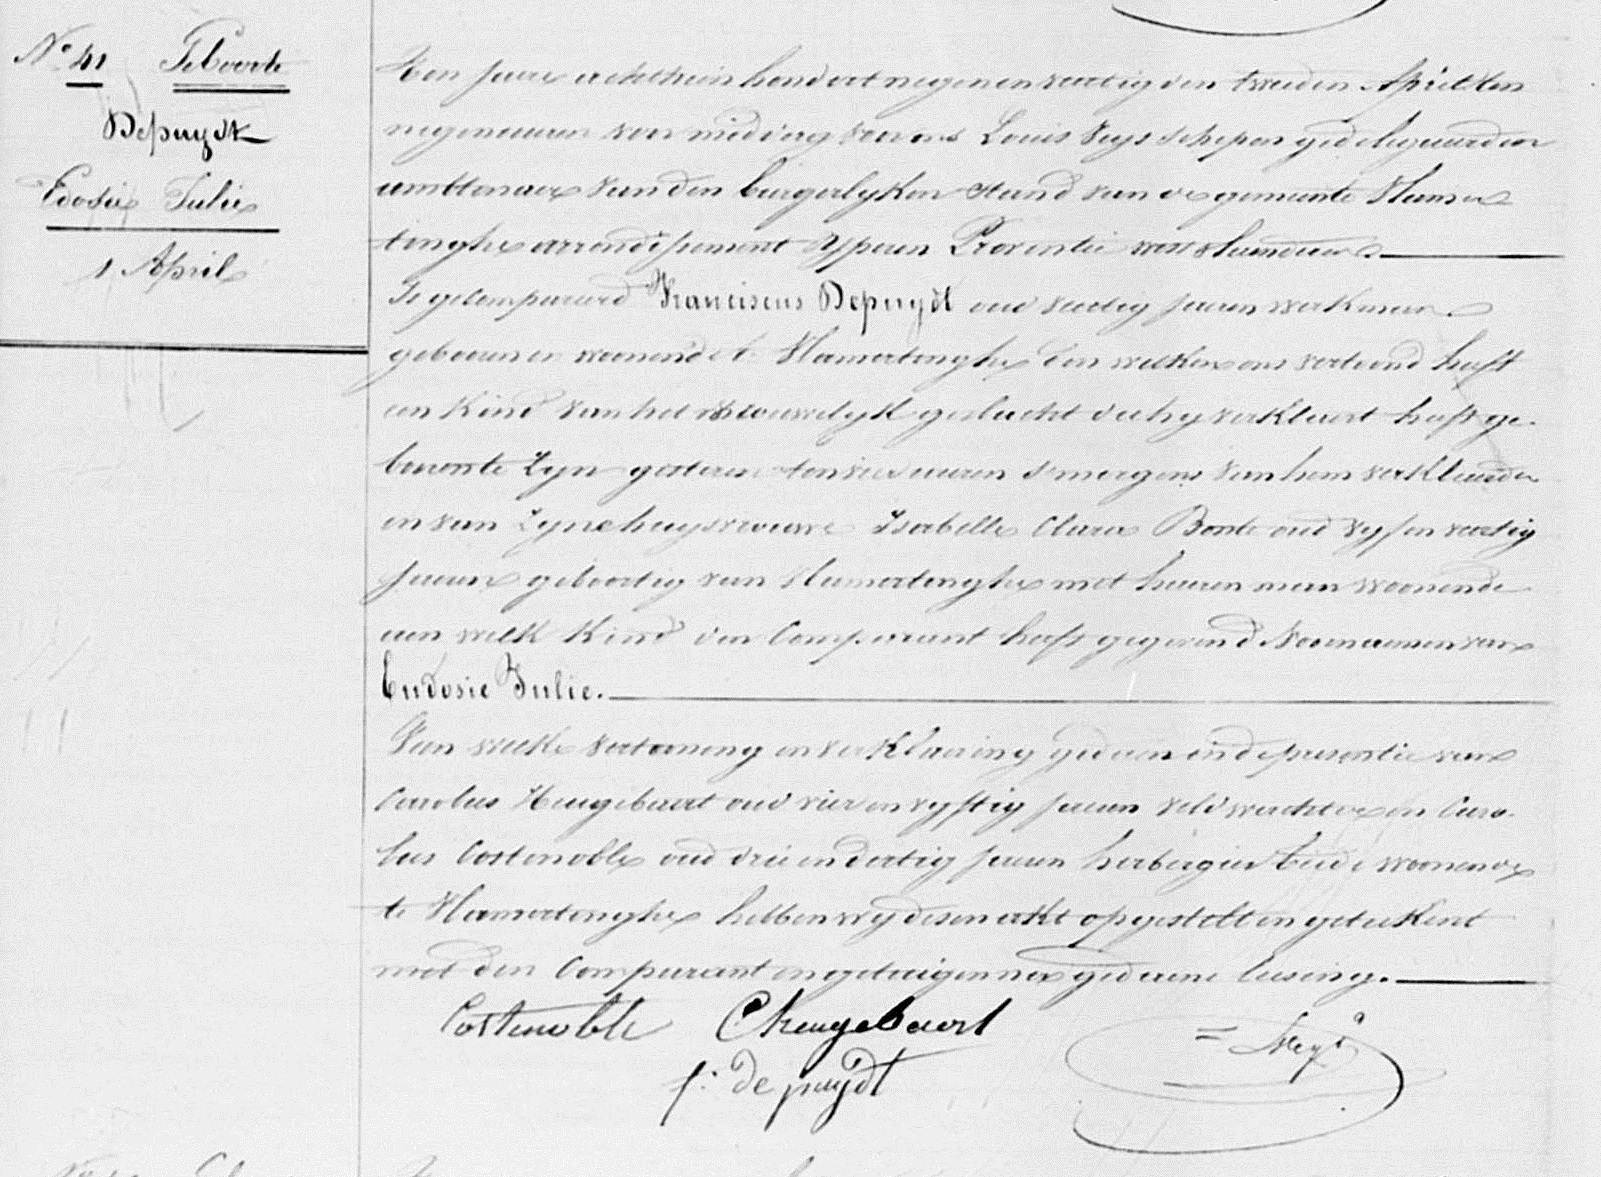 N° 41 Geboorte
Depuydt
Edosie Julie
1 April
Den jaere achthien hondert negenenveertig den tweeden April ten
negen uren voor middag voor ons Louis Veys schepen gedelegueerden
ambtenaer van den burgerlyken stand van de gemeente Vlamer
tinghe arrondissement Ypren Provintie west vlaenderen
Is gecompareerd Franciscus Depuydt oud veertig jaeren werkman
geboren en woonende te Vlamertinghe den welken ons vertoond heeft
een kind van het vrouwelyk geslacht die hy verklaert heeft ge
boren te zyn gisteren ten vier uren s'morgens van hem verklaerder
en van zyne huysvrouwe Isabelle Clara Bonte oud vyf en veertig
jaeren geboortig van Vlamertinghe met haeren man woonende
aen welk kind den Comparant heeft gegeven de Voornaemen van
Eudosie Julie.
Van welke vertooning en verklaering gedaen in de presentie van
Carolus Heugebaert oud vier en vyftig jaeren veldwachter en Caro
lus Costenoble oud drie en dertig jaeren herbergier beide woonende
te Vlamertinghe hebben wy desen akt opgestelt en geteekent
met den Comparant en getuigen na gedaene lesing.
Costenoble C Heugebaert
f: de puydt